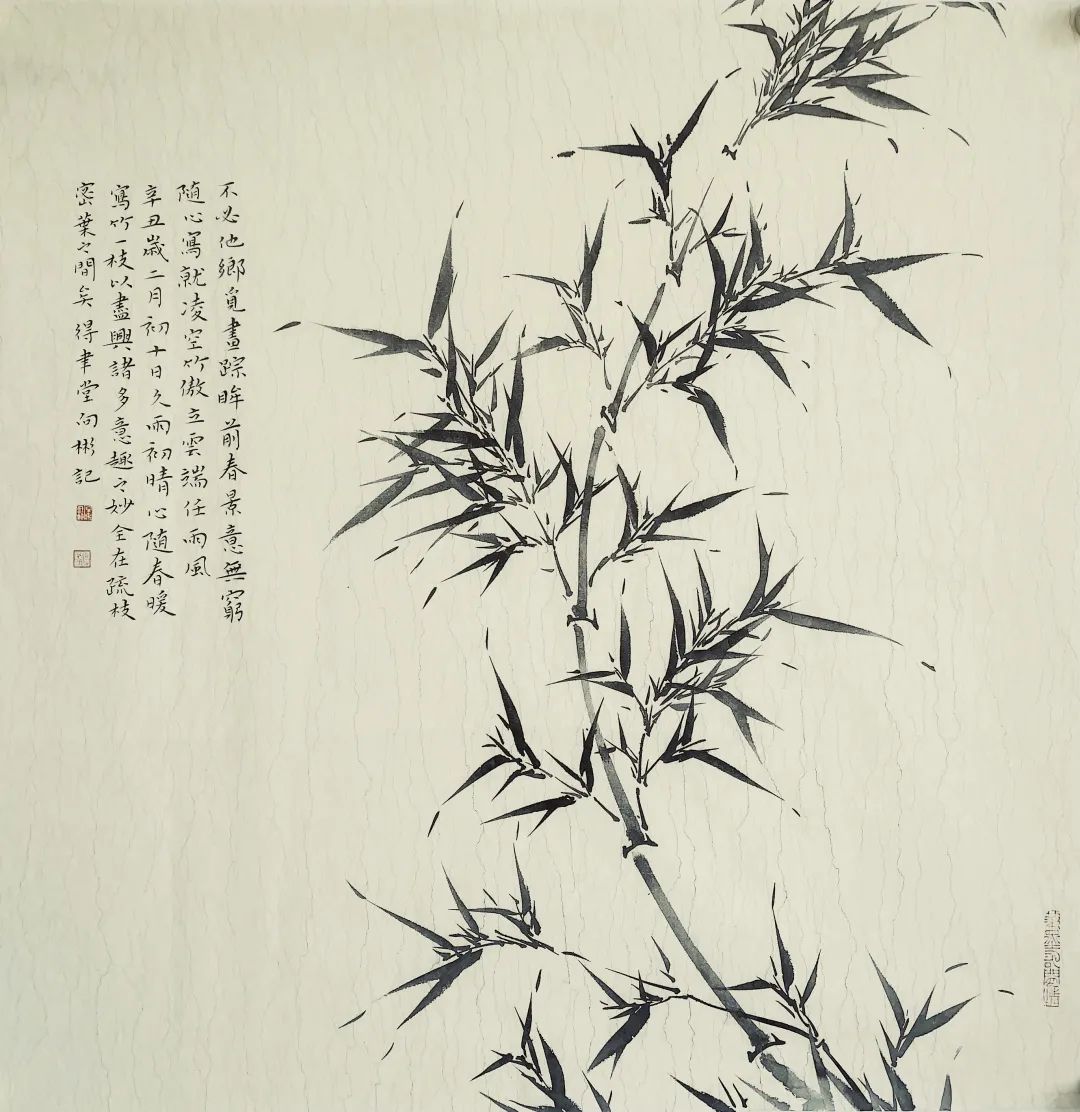 不必他鄉覓畫踪眸前春景意無窮
隨心寫就凌空竹傲立雲端任雨風
辛丑歲二月初十日久雨初晴心随春暖
寫竹一枝以盡興諸多意趣之妙全在疏枝
密葉之間矣得聿堂向彬記